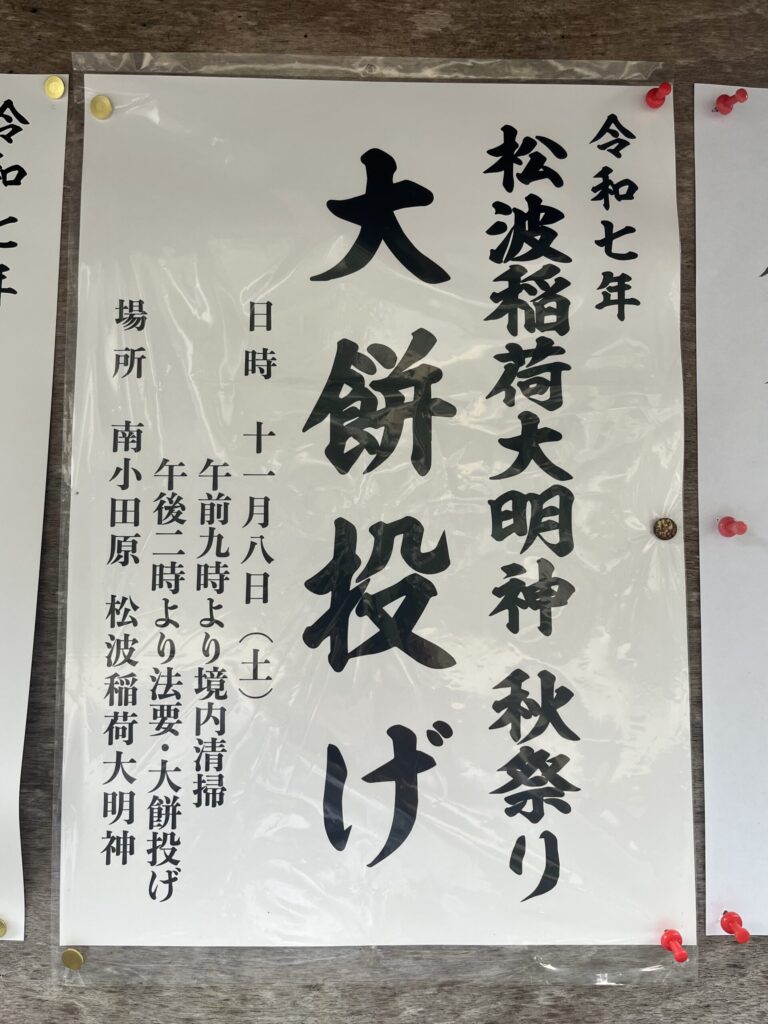 令和七年
松波稲荷大明神 秋祭り
大餅投げ
日時 十一月八日(土)
午前九時より境内清掃
午後二時より法要・大餅投げ
場所 南小田原 松波稲荷大明神
令和七年